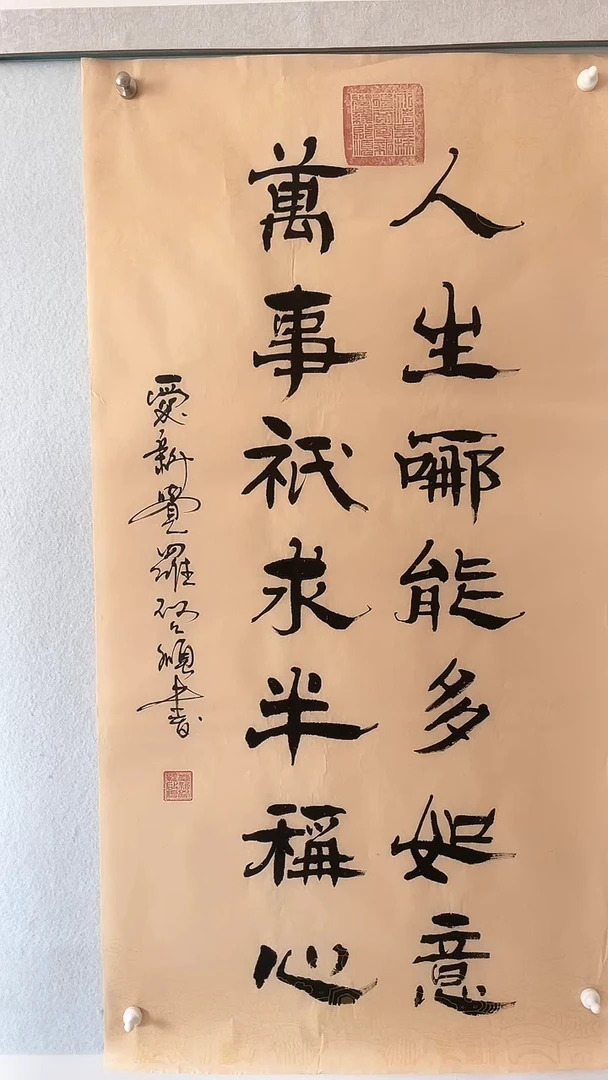 人生哪能多如意
萬事祇求半稱心
愛新覺羅啓順書